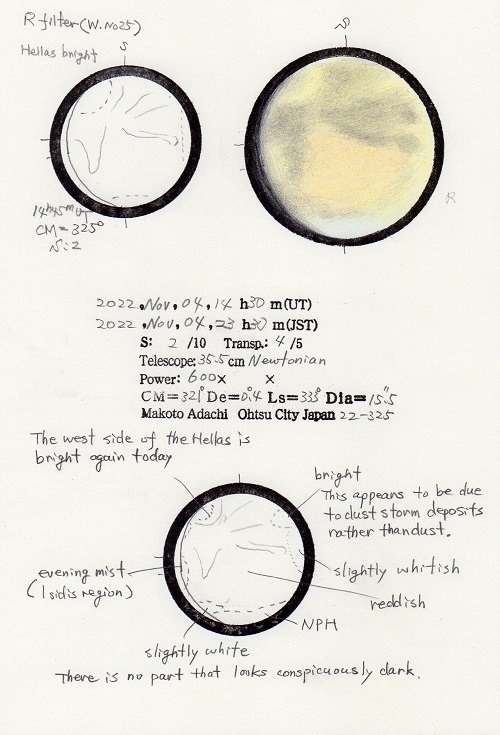 R filter (W.No25)
Hellas bright
S
S
14h45mUT
CM=325°
S:2
R
2022, Nov, 04, 14 h30 m(UT)
2022, Nov, 04, 23 h30 m(JST)
S: 2 /10 Transp.: 4 /5
Telescope: 35.5 cm Newtonian
Power: 600× ×
CM=321° De=0.4 Ls=333° Dia=15".5
Makoto Adachi Ohtsu City Japan 22-325
The west side of the Hellas is
bright again today
bright
This appears to be due
to dust storm deposits
rather than dust.
evening mist
(Isidis region)
slightly whitish
reddish
NPH
slightly white
There is no part that looks conspicuously dark.